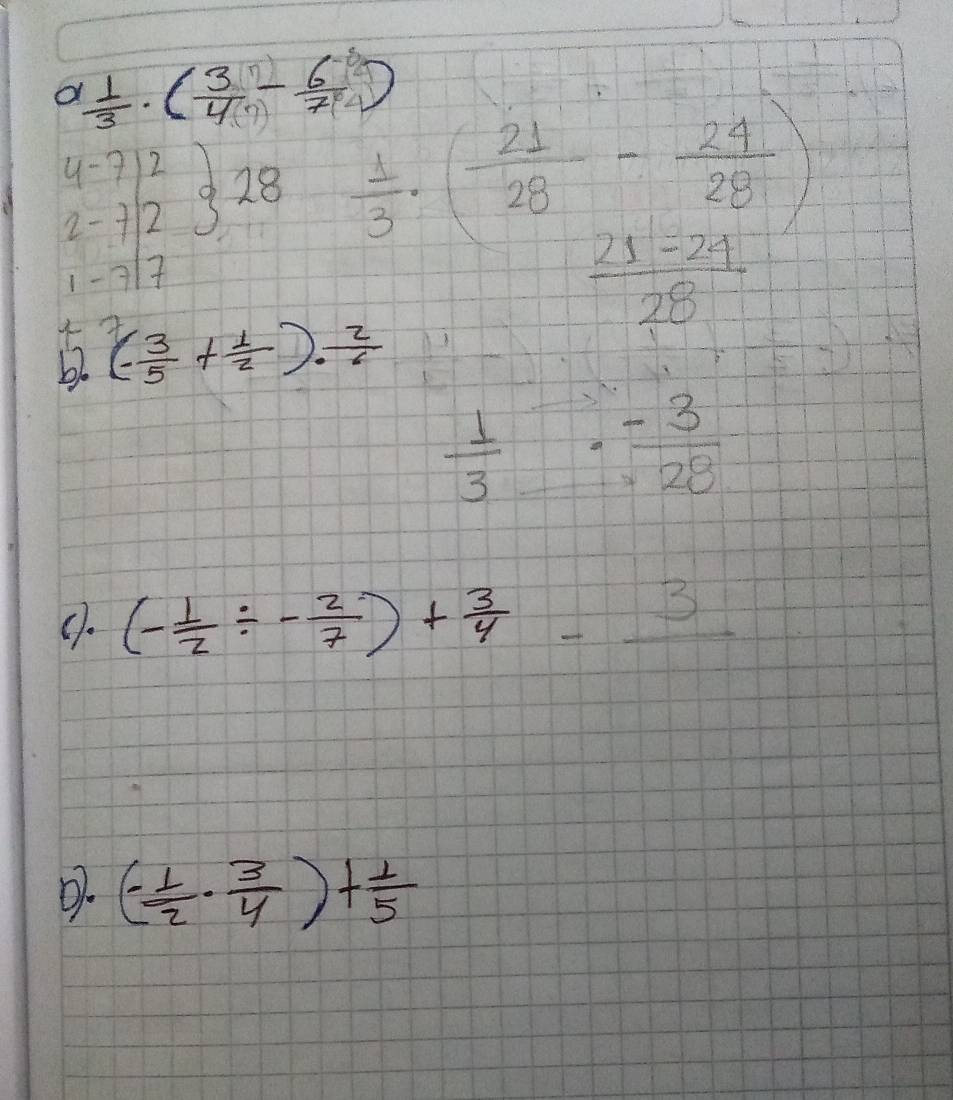 a 1/3 · (3(7)/4(7) - 6(4)/7(4))
4-7|2
2-7|2 } 28
1-7|7
1 7
1/3 · (21/28 - 24/28)
21-24/28
b). (-3/5 + 1/2) ·
1/3 · -3/28
c). (-1/2 ÷ -2/7) + 3/4
- 3/
D). (-1/2 · 3/4) + 1/5